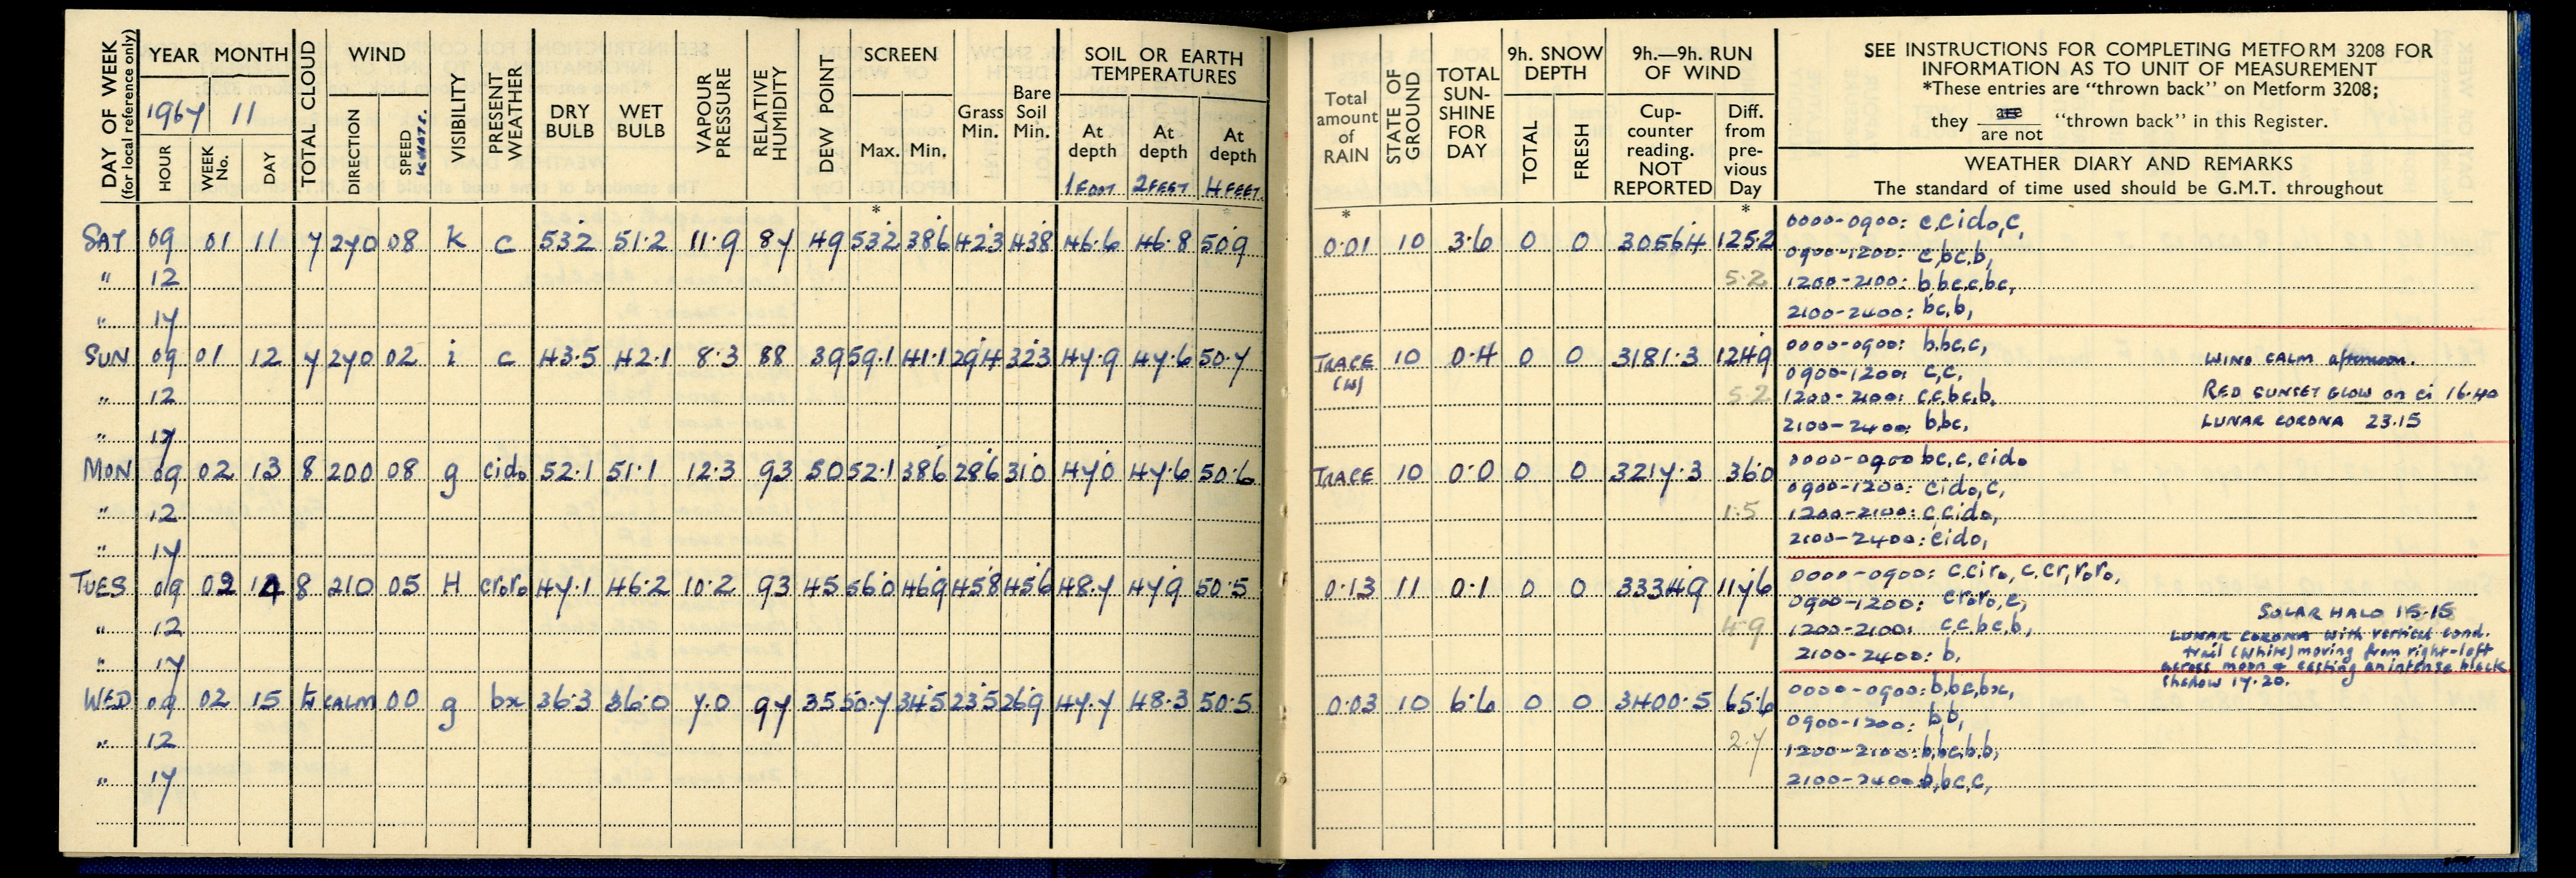 DAY OF WEEK (for local reference only)
YEAR MONTH
1967 11
HOUR WEEK No. DAY
TOTAL CLOUD
WIND
DIRECTION SPEED KNOTS.
VISIBILITY
PRESENT WEATHER
DRY BULB
WET BULB
VAPOUR PRESSURE
RELATIVE HUMIDITY
DEW POINT
SCREEN
Max. Min.
Grass Min.
Bare Soil Min.
SOIL OR EARTH TEMPERATURES
At depth 1 FOOT
At depth 2 FEET
At depth 4 FEET
* *
SAT 09 01 11 7 270 08 K c 53.2 51.2 11.9 87 49 53.2 38.6 42.3 43.8 46.6 46.8 50.9
" 12
" 17
SUN 09 01 12 7 270 02 i c 43.5 42.1 8.3 88 39 59.1 41.1 29.4 32.3 47.9 47.6 50.7
" 12
" 17
MON 09 02 13 8 200 08 g cido 52.1 51.1 12.3 93 50 52.1 38.6 28.6 31.0 47.0 47.6 50.6
" 12
" 17
TUES 09 02 14 8 210 05 H croro 47.1 46.2 10.2 93 45 56.0 46.9 45.8 45.6 48.7 47.9 50.5
" 12
" 17
WED 09 02 15 CALM 00 g bx 36.3 36.0 7.0 97 35 50.7 34.5 23.5 26.9 47.7 48.3 50.5
" 12
" 17
Total amount of RAIN
STATE OF GROUND
TOTAL SUN-SHINE FOR DAY
9h. SNOW DEPTH
TOTAL FRESH
9h.—9h. RUN OF WIND
Cup-counter reading. NOT REPORTED
Diff. from pre-vious Day
SEE INSTRUCTIONS FOR COMPLETING METFORM 3208 FOR
INFORMATION AS TO UNIT OF MEASUREMENT
*These entries are "thrown back" on Metform 3208;
they are / are not "thrown back" in this Register.
WEATHER DIARY AND REMARKS
The standard of time used should be G.M.T. throughout
* *
0.01 10 3.6 0 0 3056.4 125.2
5.2
0000-0900: c,cido,c,
0900-1200: c,bc,b,
1200-2100: b,bc,c,bc,
2100-2400: bc,b,
TRACE (W) 10 0.4 0 0 3181.3 124.9
5.2
0000-0900: b,bc,c,
0900-1200: c,c,
1200-2100: c,c,bc,b,
2100-2400: b,bc,
WIND CALM afternoon.
RED SUNSET GLOW on ci 16.40
LUNAR CORONA 23.15
TRACE 10 0.0 0 0 3217.3 36.0
1.5
0000-0900 bc,c,cido
0900-1200: cido,c,
1200-2100: c,cido,
2100-2400: cido,
0.13 11 0.1 0 0 3334.9 117.6
4.9
0000-0900: c,ciro,c,cr,roro,
0900-1200: croro,c,
1200-2100: c,c,bc,b,
2100-2400: b,
SOLAR HALO 15.15
LUNAR CORONA with vertical cond.
trail (white) moving from right-left
across moon & casting an intense black
shadow 17.20.
0.03 10 6.6 0 0 3400.5 65.6
2.7
0000-0900: b,bc,bx,
0900-1200: b,b,
1200-2100: b,bc,b,b,
2100-2400: b,bc,c,